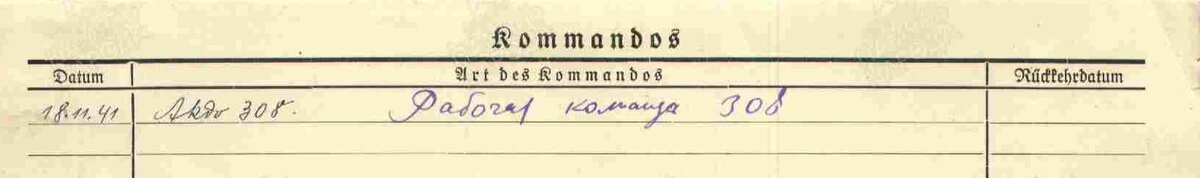 Kommandos
Datum Art des Kommandos Rückkehrdatum
18.11.41 Akdo 308. Рабочая команда 308